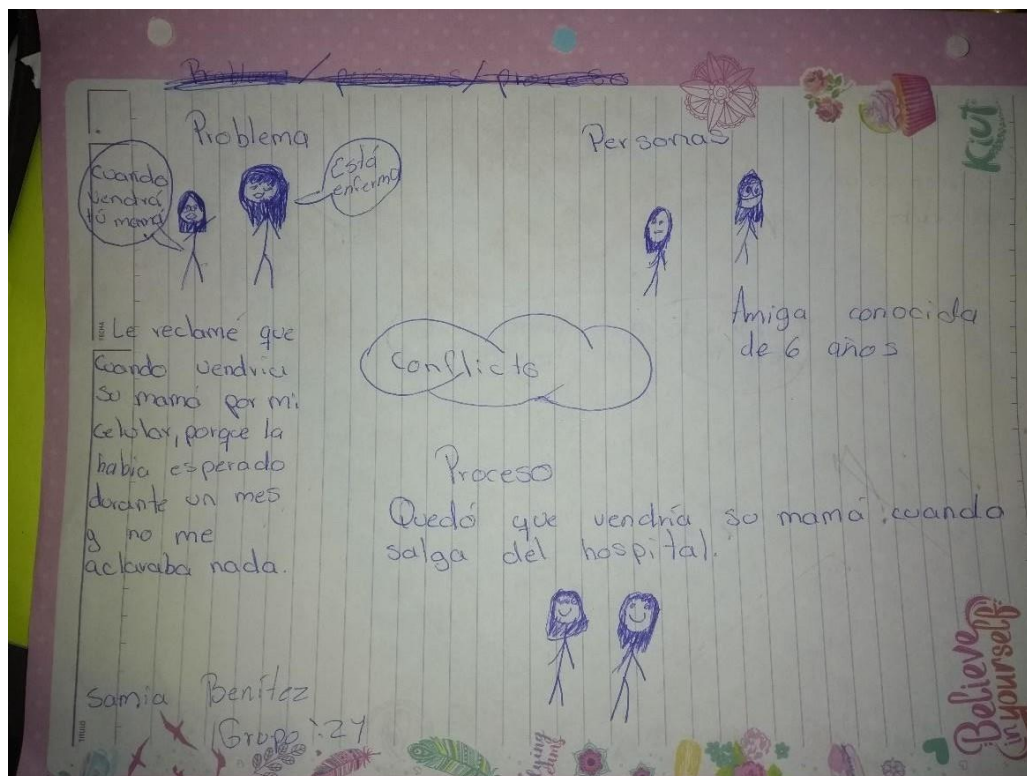 Problema / personas / proceso
Problema
cuando
vendrá
tú mamá
Está
enferma
Le reclamé que
cuando vendría
su mamá por mi
celular, porque la
había esperado
durante un mes
y no me
aclaraba nada.
Personas
Amiga conocida
de 6 años
Conflicto
Proceso
Quedó que vendría su mamá cuando
salga del hospital.
Samia Benítez
Grupo: 24
Kiut
Believe
in yourself!